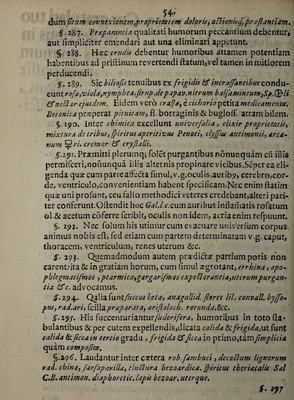 54.
dum situm connexionem, proprietatem doloris, actiónisq; præstantiam.
§. 287. Præparantia qualitati humorum peccantium debentur,
aut simpliciter emendari aut una eliminari appetunt.
§. 288. Hæc crudis debentur humoribus attamen potentiam
habentibus ad pristinum revertendi statum, vel tamen in mitiorem
perducendi.
§. 289. Sic biliosis tenuibus ex frigidis & incrassantibus condu-
cunt rosa, viola, nymphæa, sirup. de papav. nitrum balsaminum, Sp.
& nectar ejusdem. Eidem verò crassæ, è cichorio petita medicamenta.
Betonica præperat pituitam, si borraginis & buglossi atram bilem.
§. 290. Inter chimica excellunt universalia, elixir proprietatis,
mixtura de tribus, spiritus aperitivus Penoti, clyssus antimonii, arca-
num ri. cremor & crystalli.
§. 291. Præmitti plerumq; solêt purgantibus nõnunquàm cũ illis
permisceri, nonnunquã illis alternis propinare vicibus. Sẽper ea eli-
genda quæ cum parte affecta simul, v.g. oculis, auriby, cerebro, cor-
de, ventriculo, convenientiam habent specificam. Nec enim statim
quæ uni prosunt, ceu falso methodici veteres credebant, alteri pari-
ter conferant. Ostendit hoc Gal. d.c. cum auribus inflatis rosatum
ol. & acetum cõferre scribit, oculis non idem, acria enim respuunt.
§. 292. Nec solum his utimur cum evacuare universum corpus
animus nobis est, sed etiam cum partem determinatam v.g. caput,
thoracem, ventriculum, renes uterum &c.
§. 293. Quemadmodum autem prædictæ partium poris non
carent, ita & in gratiam horum, cum simul ægrotant, errhina, apo-
phlegmatismos, ptarmica, gargarismos expectorantia, uterum purgan-
tia &c. advocamus.
§. 294. Qalia sunt succus beta, anagallid. flores lil. convall. hysso-
pus, rad. ari, scilla præparata, aristoloch. rotunda, &c.
§. 295. His succenturiantur sudorifera, humoribus in toto sta-
bulantibus & per cutem expellendis, dicata calida & frigida, ut sunt
calida & sicca in tertio gradu, frigida & sicca in primo, tàm simplicia
quàm composita.
§. 296. Laudantur inter cætera rob. sambuci, decoctum lignorum
rad. china, sarsaparilla, tinctura bezoardica, spiritus theriacalis Sal
C.B. antimon. diaphoretic. lapis bezoar. uterque.
§. 297